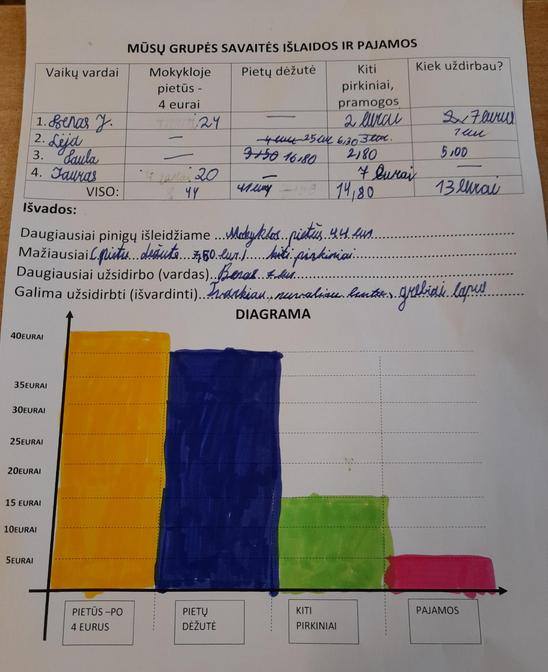 MŪSŲ GRUPĖS SAVAITĖS IŠLAIDOS IR PAJAMOS
Vaikų vardai Mokykloje pietūs - 4 eurai Pietų dėžutė Kiti pirkiniai, pramogos Kiek uždirbau?
1. Benas J. 24 — 2 Eurai 7 eurus
2. Lėja — 4 eur 25 eur 6,20 3 eur. 1 eur
3. Saula — 3,50 16,80 2,80 5,00
4. Tauras 20 7 Eurai —
VISO: 44 41 eur 14,80 13 Eurai
Išvados:
Daugiausiai pinigų išleidžiame Mokyklos pietūs 44 eur
Mažiausiai (pietų dėžutė 3,50 eur) kiti pirkiniai
Daugiausiai užsidirbo (vardas) Benas 7 eur
Galima užsidirbti (išvardinti) grėbiau lapus
DIAGRAMA
40EURAI
35EURAI
30EURAI
25EURAI
20EURAI
15 EURAI
10EURAI
5EURAI
PIETŪS –PO 4 EURUS PIETŲ DĖŽUTĖ KITI PIRKINIAI PAJAMOS